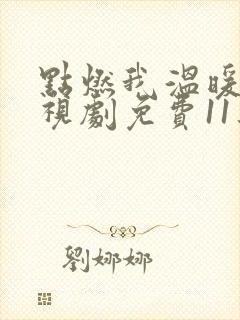 點燃我,溫暖
視劇免費11
劉娜娜